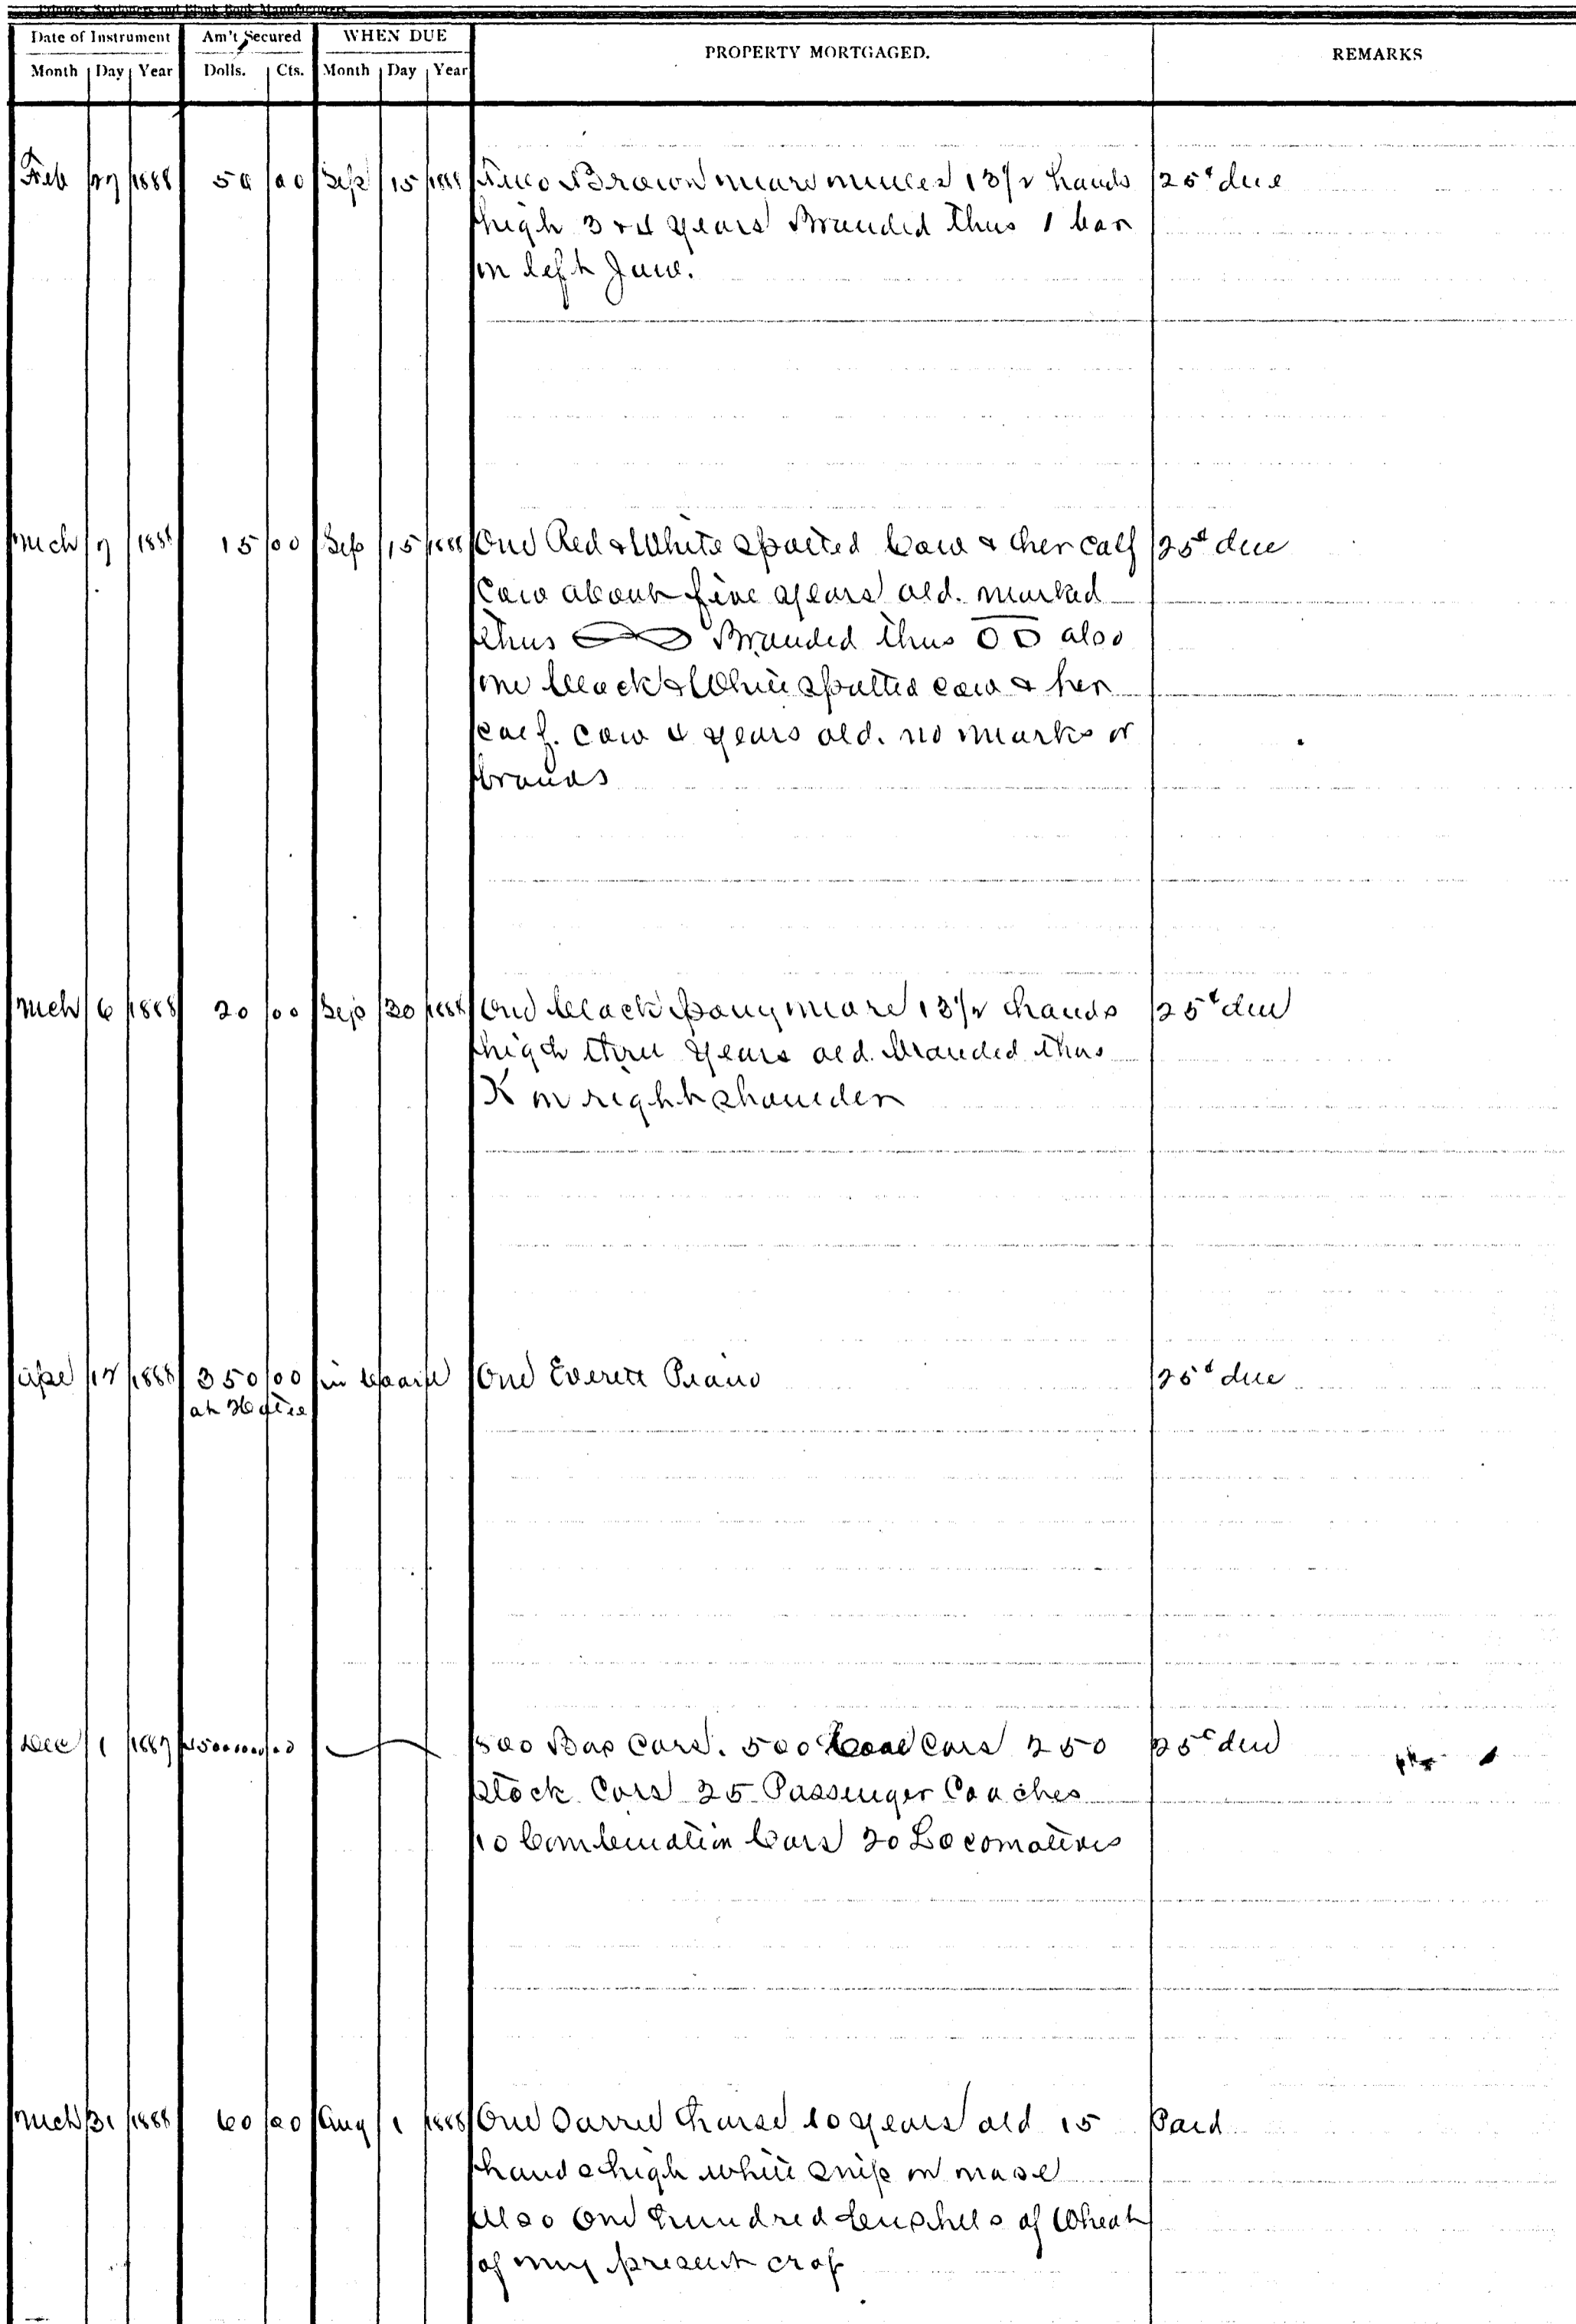 Printers, Stationers and Blank Book Manufacturers
Date of Instrument Am't Secured WHEN DUE PROPERTY MORTGAGED. REMARKS
Month Day Year Dolls. Cts. Month Day Year
Feb 27 1888 50 00 Sep 15 1888 Two Brown mare mules 13 1/2 hands 25¢ due
high 3 & 4 years Branded thus 1 bar
on left Jaw.
Mch 7 1888 15 00 Sep 15 1888 One Red & White spotted Cow & her calf 25¢ due
Cow about five years old. marked
thus Branded thus also
one black & White spotted cow & her
calf. cow 4 years old. no marks or
brands
Mch 6 1888 20 00 Sep 20 1888 One black pony mare 13 1/2 hands 25¢ due
high three years old. branded thus
X on right shoulder
Apl 17 1888 350 00 One Everett Piano 25¢ due
Dec 1 1887 500 Box Cars. 500 Coal Cars 250 25¢ due
Stock Cars 25 Passenger Coaches
10 Combination Cars 20 Locomotives
Mch 31 1888 60 00 Aug 1 1888 One Sorrel horse 10 years old 15 Paid
hands high white snip on nose
Also One hundred bushels of Wheat
of my present crop